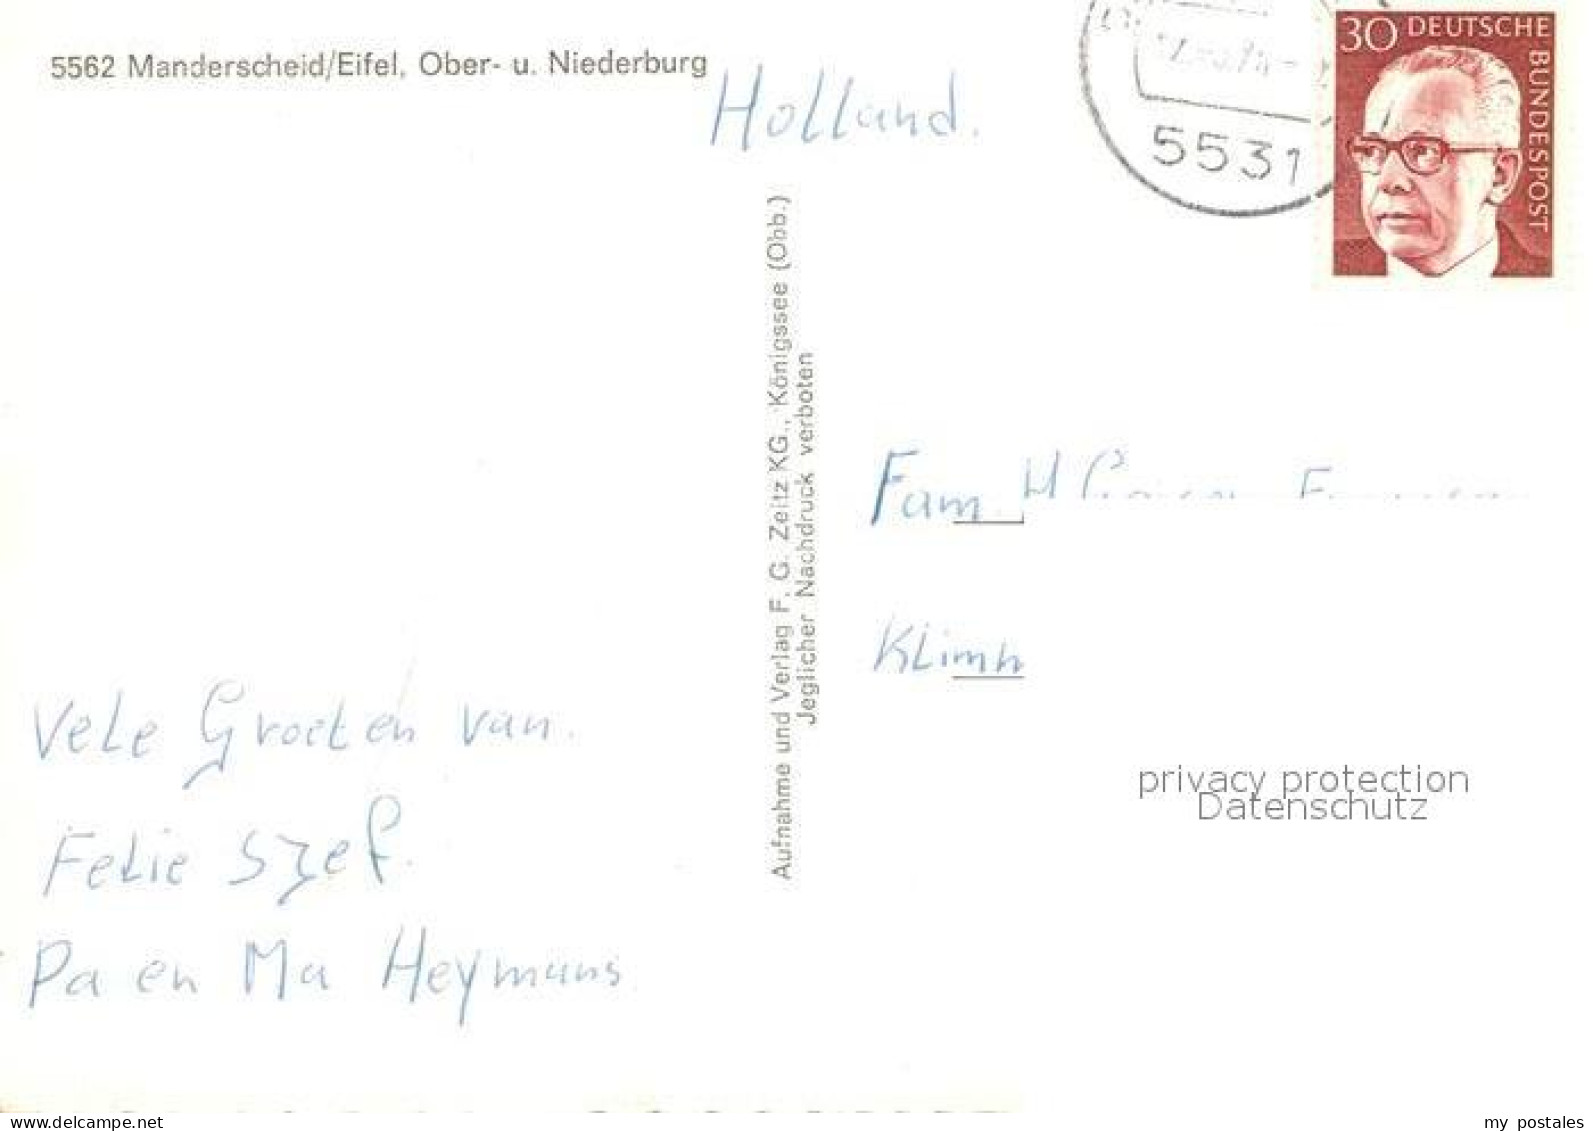 5562 Manderscheid/Eifel, Ober- u. Niederburg
Holland.
5531
30 DEUTSCHE
BUNDESPOST
Aufnahme und Verlag F. G. Zeitz KG., Königssee (Obb.)
Jeglicher Nachdruck verboten
Fam. H
Klimh
privacy protection
Datenschutz
Vele Groeten van.
Felie Szef.
Pa en Ma Heymans
www.delcampe.net
my_postales